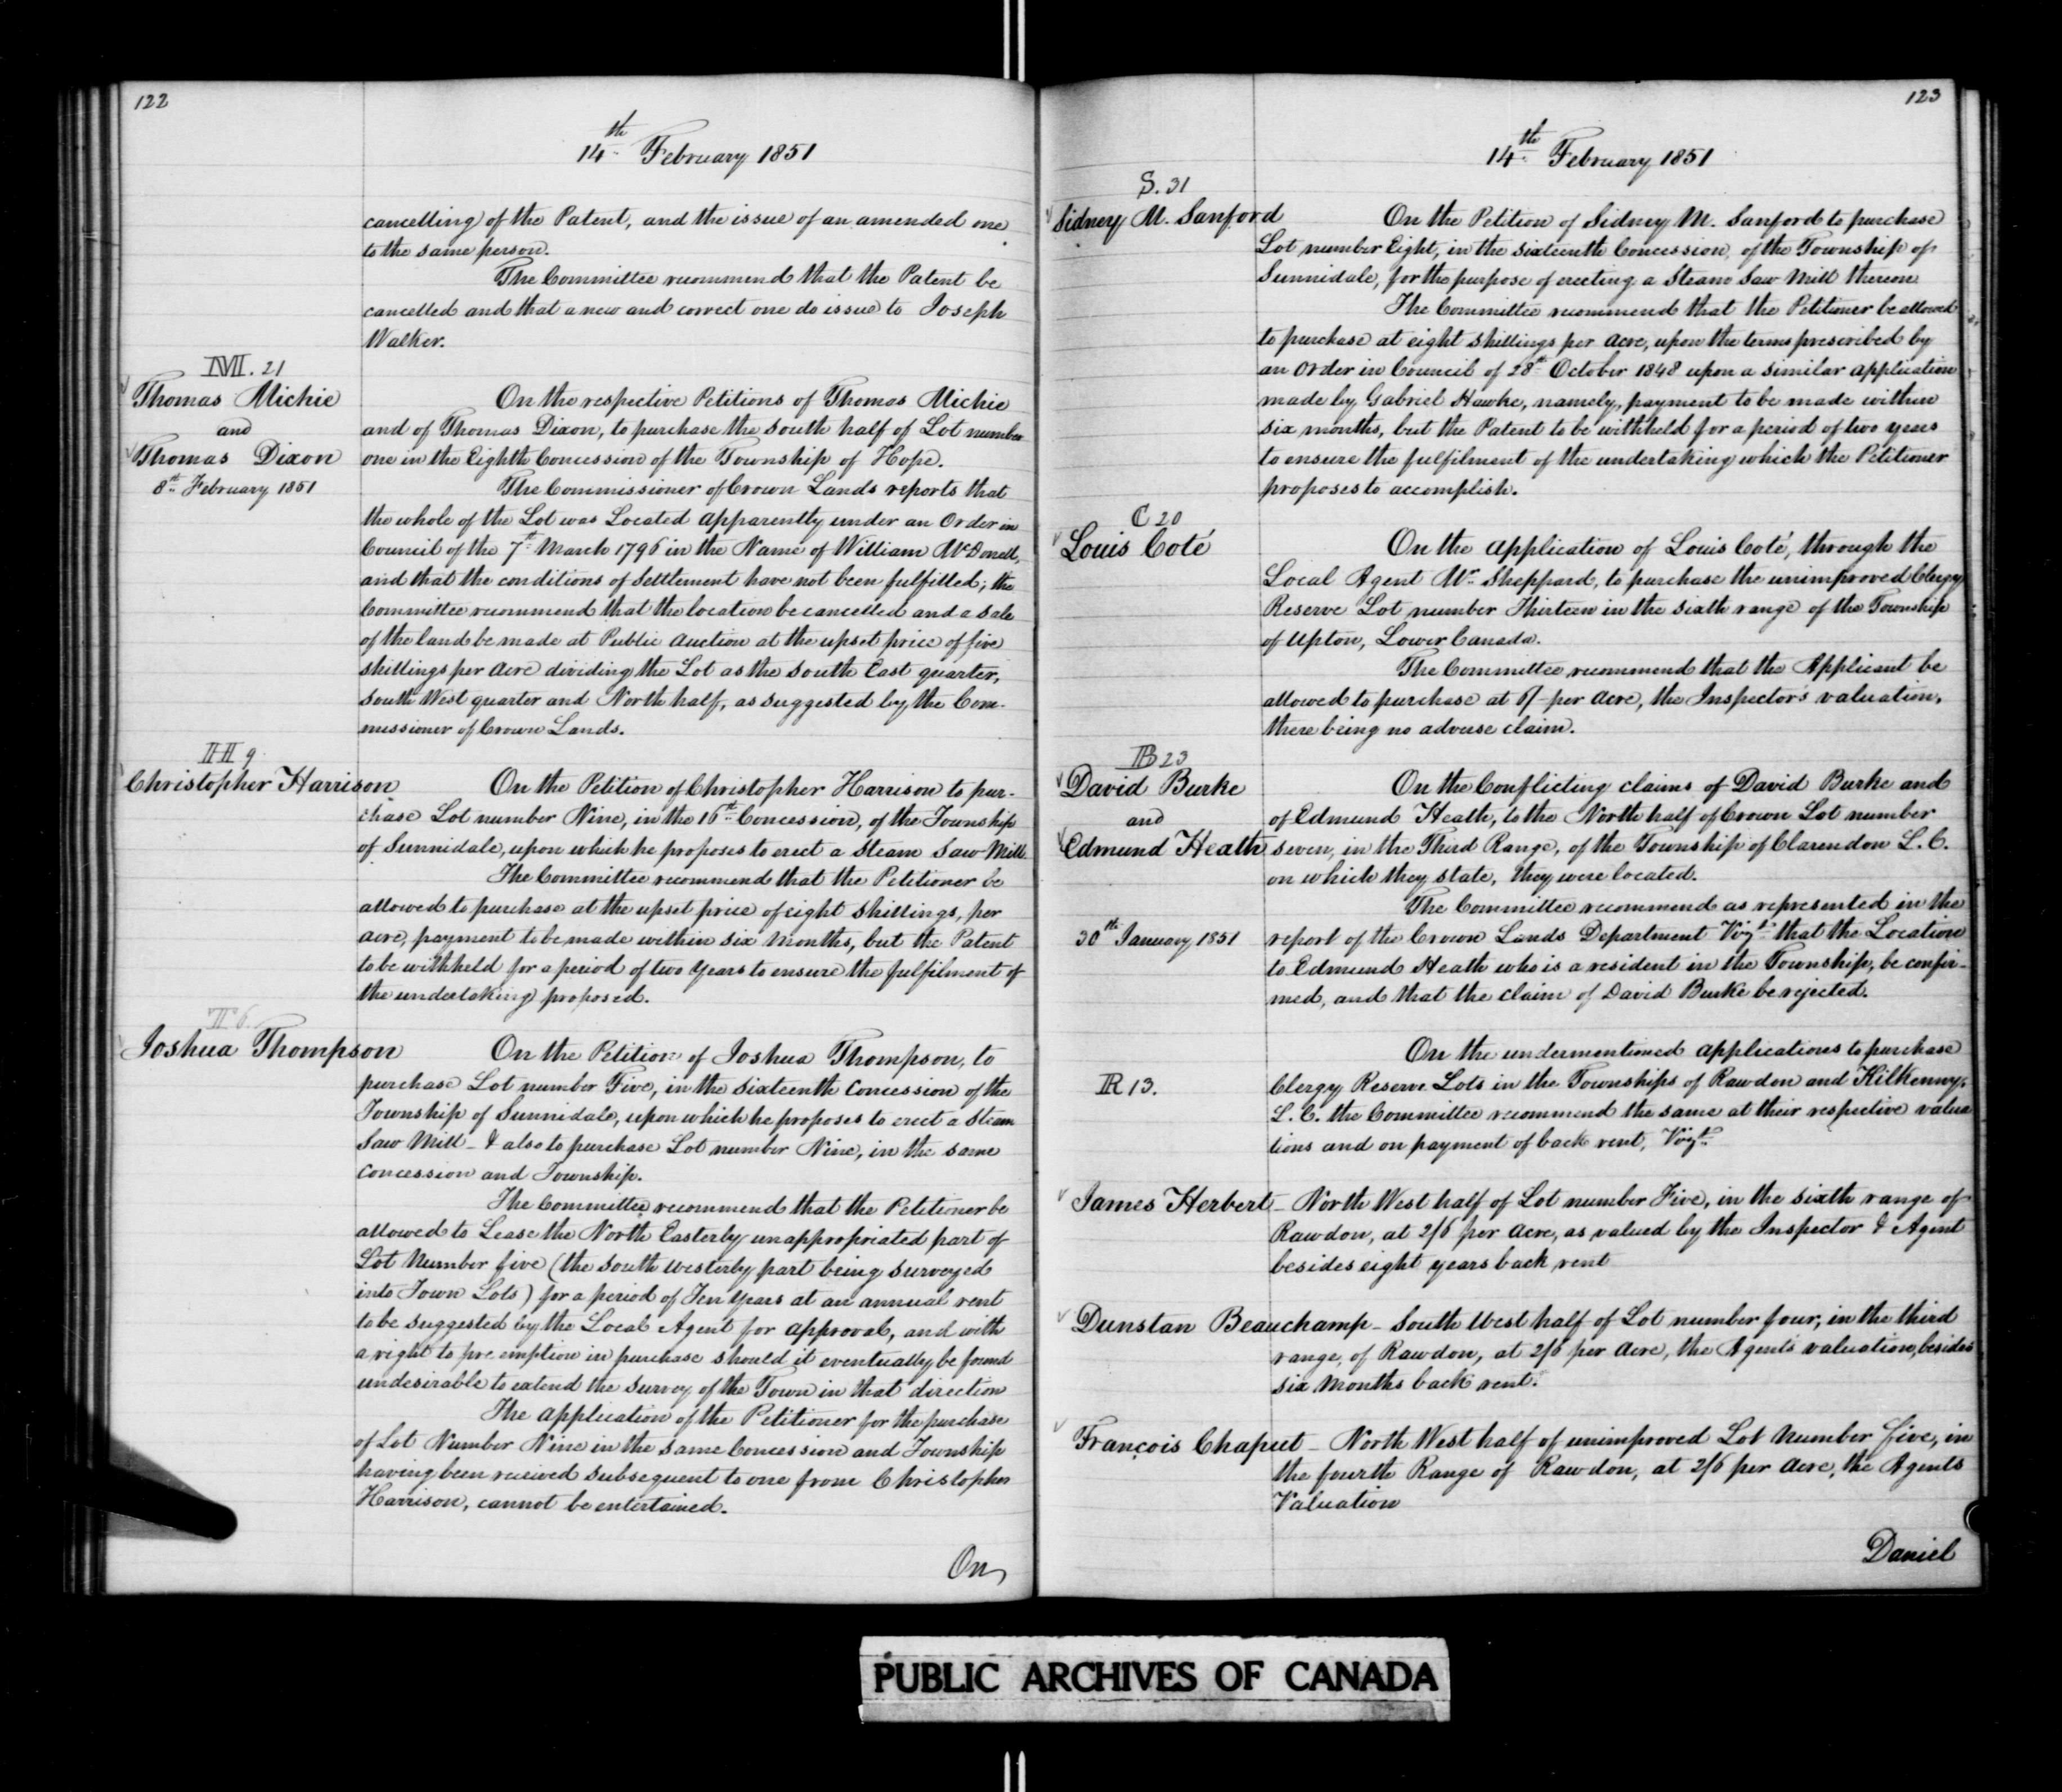 122
14th February 1851
cancelling of the Patent, and the issue of an amended one
to the same person.
The Committee recommend that the Patent be
cancelled and that a new and correct one do issue to Joseph
Walker.
M. 21
Thomas Michie
and
Thomas Dixon
8th February 1851
On the respective Petitions of Thomas Michie
and of Thomas Dixon, to purchase the south half of Lot number
one in the Eighth Concession of the Township of Hope.
The Commissioner of Crown Lands reports that
the whole of the Lot was Located apparently under an Order in
Council of the 7th March 1796 in the Name of William McDonell,
and that the conditions of Settlement have not been fulfilled; the
Committee recommend that the location be cancelled and a sale
of the land be made at Public Auction at the upset price of five
shillings per Acre dividing the Lot as the South East quarter,
South West quarter and North half, as suggested by the Com-
missioner of Crown Lands.
H 9
Christopher Harrison
On the Petition of Christopher Harrison to pur-
chase Lot number Nine, in the 16th Concession, of the Township
of Sunnidale, upon which he proposes to erect a Steam Saw Mill.
The Committee recommend that the Petitioner be
allowed to purchase at the upset price of eight shillings, per
acre, payment to be made within six months, but the Patent
to be withheld for a period of two years to ensure the fulfilment of
the undertaking proposed.
T 6
Joshua Thompson
On the Petition of Joshua Thompson, to
purchase Lot number Five, in the sixteenth Concession of the
Township of Sunnidale, upon which he proposes to erect a Steam
Saw Mill - & also to purchase Lot number Nine, in the same
Concession and Township.
The Committee recommend that the Petitioner be
allowed to Lease the North Easterly unappropriated part of
Lot Number five (the South Westerly part being surveyed
into Town Lots) for a period of Ten Years at an annual rent
to be suggested by the Local Agent for approval, and with
a right to pre emption in purchase should it eventually be found
undesirable to extend the survey of the Town in that direction
The application of the Petitioner for the purchase
of Lot Number Nine in the same Concession and Township
having been received subsequent to one from Christopher
Harrison, cannot be entertained.
On
123
14th February 1851
S. 31
Sidney M. Sanford
On the Petition of Sidney M. Sanford to purchase
Lot number Eight, in the sixteenth Concession, of the Township of
Sunnidale, for the purpose of erecting a Steam Saw Mill thereon
The Committee recommend that the Petitioner be allowed
to purchase at eight shillings per acre, upon the terms prescribed by
an Order in Council of 28th October 1848 upon a similar application
made by Gabriel Hawke, namely, payment to be made within
six months, but the Patent to be withheld for a period of two years
to ensure the fulfilment of the undertaking which the Petitioner
proposes to accomplish.
C 20
Louis Coté
On the application of Louis Coté, through the
Local Agent Mr Sheppard, to purchase the unimproved Clergy
Reserve Lot number Thirteen in the sixth range of the Township
of Upton, Lower Canada.
The Committee recommend that the Applicant be
allowed to purchase at 6/- per acre, the Inspector's valuation,
there being no adverse claim.
B 23
David Burke
and
Edmund Heath
On the Conflicting claims of David Burke and
of Edmund Heath, to the North half of Crown Lot number
seven, in the Third Range, of the Township of Clarendon L. C.
on which they state, they were located.
The Committee recommend as represented in the
30th January 1851
report of the Crown Lands Department Vizt that the Location
to Edmund Heath who is a resident in the Township, be confir-
med, and that the claim of David Burke be rejected.
On the undermentioned applications to purchase
R 13.
Clergy Reserve Lots in the Townships of Rawdon and Kilkenny,
L. C. the Committee recommend the same at their respective valua
tions and on payment of back rent, Vizt
James Herbert - North West half of Lot number Five, in the sixth range of
Rawdon, at 2/6 per acre, as valued by the Inspector & Agent
besides eight years back rent
Dunstan Beauchamp - South West half of Lot number four, in the third
range, of Rawdon, at 2/6 per acre, the Agents valuation, besides
six months back rent.
François Chaput - North West half of unimproved Lot Number five, in
the fourth Range of Rawdon, at 2/6 per acre, the Agents
Valuation
Daniel
PUBLIC ARCHIVES OF CANADA